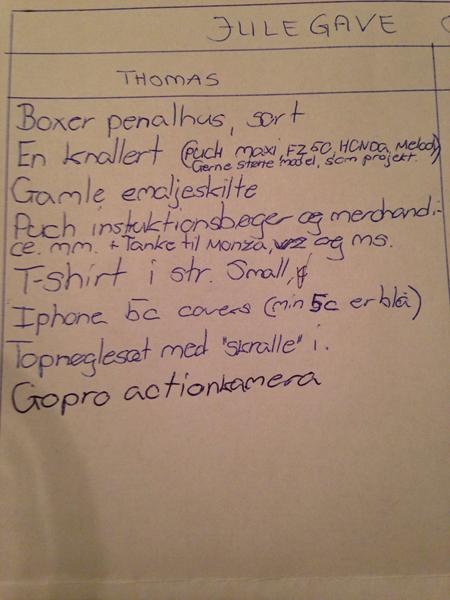 JULEGAVE
THOMAS
Boxer penalhus, sort
En knallert (Puch maxi, FZ50, HONDA, Melodi)
Gerne større model, som projekt.
Gamle emaljeskilte
Puch instuktionsbøger og merchandi-
ce. mm. + Tanke til Monza, vz og ms.
T-shirt i str. Small,
Iphone 5c covers (min 5c er blå)
Topnøglesæt med "skralle" i.
Gopro actionkamera